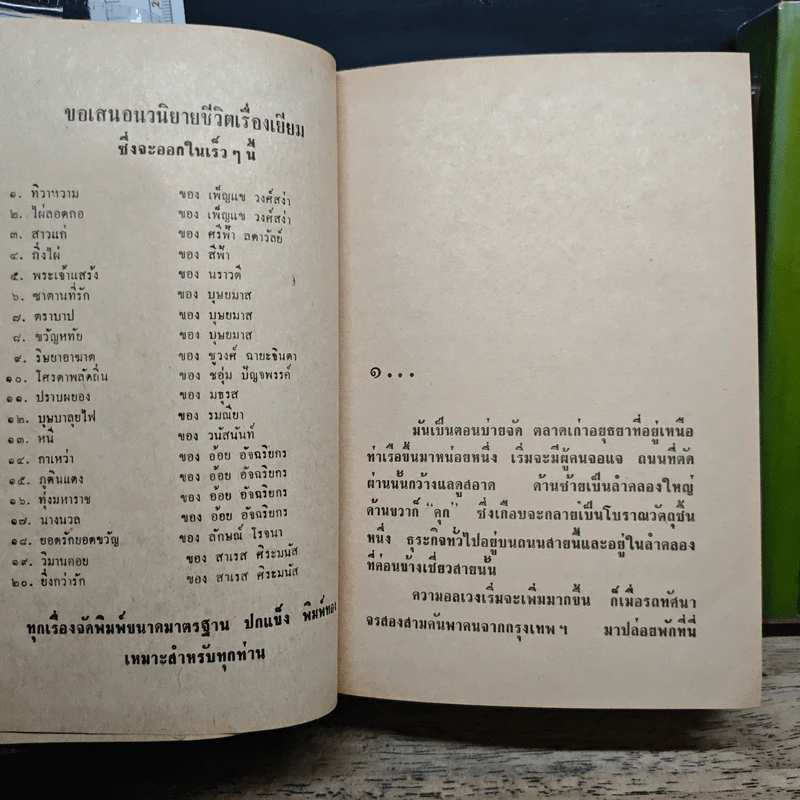 ขอเสนอนวนิยายชีวิตเรื่องเยี่ยม
ซึ่งจะออกในเร็ว ๆ นี้
๑. ทิวาหวาม ของ เพ็ญแข วงศ์สง่า
๒. ไผ่ลอดกอ ของ เพ็ญแข วงศ์สง่า
๓. สาวแก่ ของ ศรีฟ้า ลดาวัลย์
๔. กิ่งไผ่ ของ สีฟ้า
๕. พระเจ้าแสร้ง ของ นราวดี
๖. ซาตานที่รัก ของ บุษยมาส
๗. ตราบาป ของ บุษยมาส
๘. ขวัญหทัย ของ บุษยมาส
๙. ริษยาอาฆาต ของ ชูวงศ์ ฉายะจินดา
๑๐. โศรดาพลัดถิ่น ของ ชอุ่ม ปัญจพรรค์
๑๑. ปราบผยอง ของ มธุรส
๑๒. บุษบาลุยไฟ ของ รมณียา
๑๓. หนี ของ วนัสนันท์
๑๔. กาเหว่า ของ อ้อย อัจฉริยกร
๑๕. ภูตินแดง ของ อ้อย อัจฉริยกร
๑๖. ทุ่งมหาราช ของ อ้อย อัจฉริยกร
๑๗. นางนวล ของ อ้อย อัจฉริยกร
๑๘. ยอดรักยอดขวัญ ของ ลักษณ์ โรจนา
๑๙. วิมานคอย ของ สาเรส ศิระมนัส
๒๐. ยิ่งกว่ารัก ของ สาเรส ศิระมนัส
ทุกเรื่องจัดพิมพ์ขนาดมาตรฐาน ปกแข็ง พิมพ์ทอง
เหมาะสำหรับทุกท่าน
๑...
มันเป็นตอนบ่ายจัด ตลาดเก่าอยุธยาที่อยู่เหนือ
ท่าเรือขึ้นมาหน่อยหนึ่ง เริ่มจะมีผู้คนจอแจ ถนนที่ตัด
ผ่านนั้นกว้างแลดูสอาด ด้านซ้ายเป็นลำคลองใหญ่
ด้านขวาก็ “คุก” ซึ่งเกือบจะกลายเป็นโบราณวัตถุชิ้น
หนึ่ง ธุระกิจทั่วไปอยู่บนถนนสายนี้และอยู่ในลำคลอง
ที่ค่อนข้างเชี่ยวสายนั้น
ความอลเวงเริ่มจะเพิ่มมากขึ้น ก็เมื่อรถทัศนา
จรสองสามคันพาคนจากกรุงเทพ ฯ มาปล่อยพักที่นี่